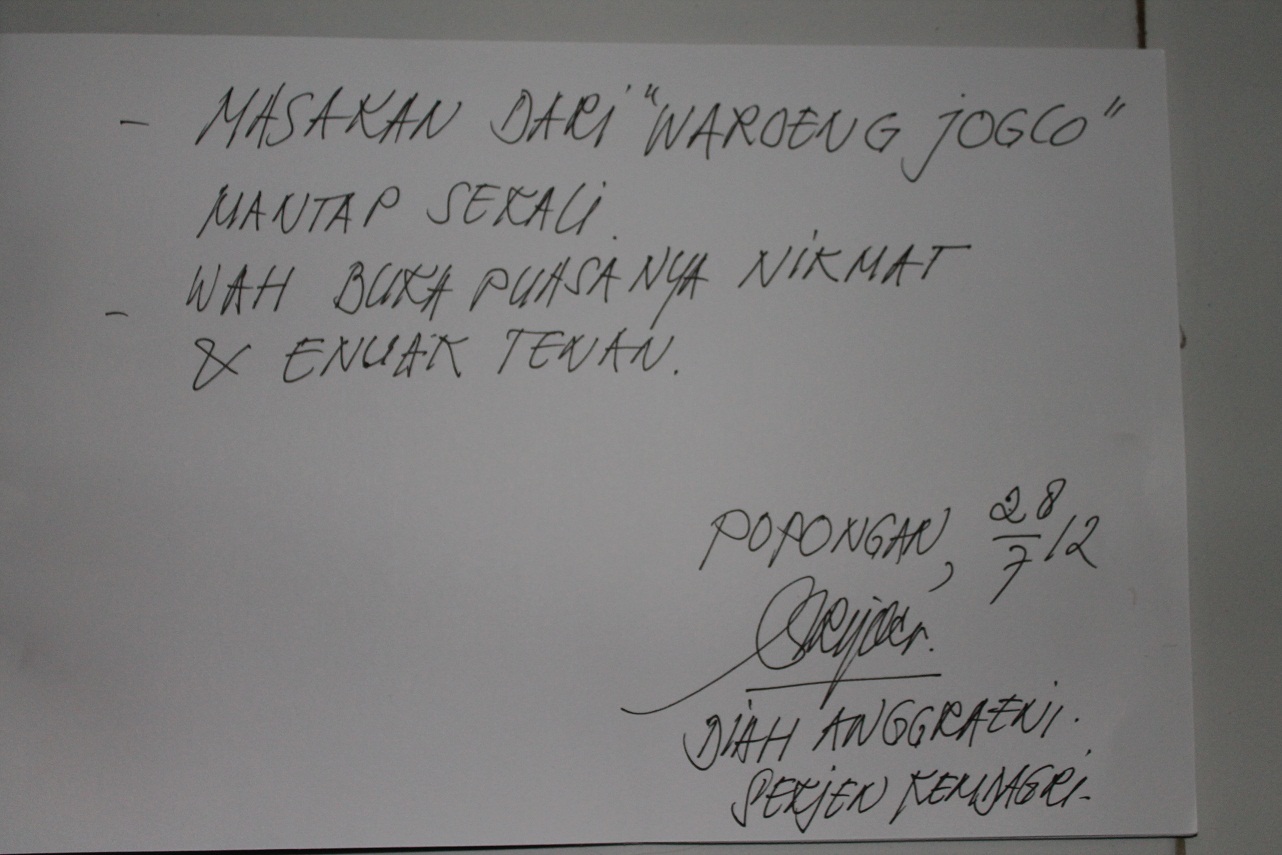 - MASAKAN DARI "WAROENG JOGLO"
MANTAP SEKALI.
- WAH BUKA PUASANYA NIKMAT
& ENUAK TENAN.
POPONGAN, 28/7/12
DIAH ANGGRAENI.
SEKJEN KEMDAGRI.